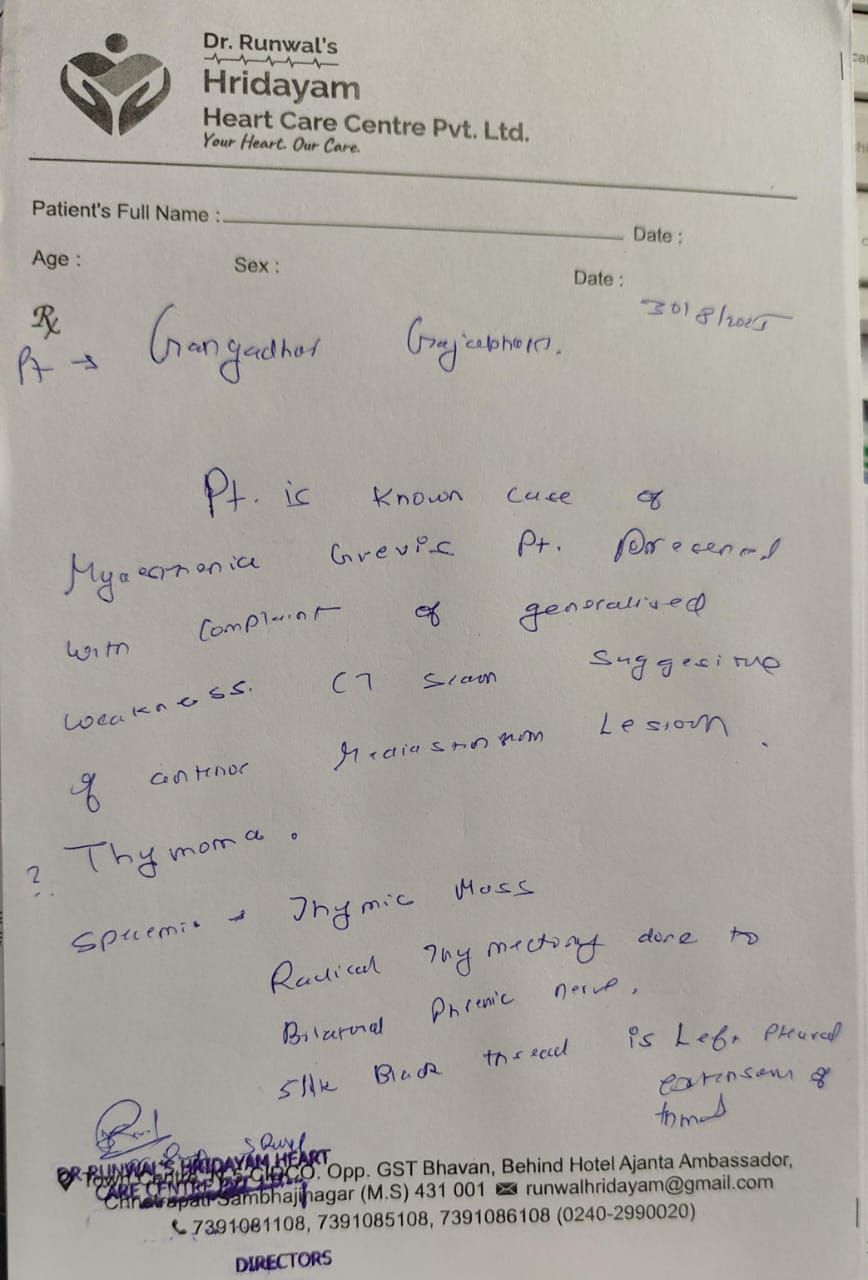 Dr. Runwal's
Hridayam
Heart Care Centre Pvt. Ltd.
Your Heart. Our Care.
Patient's Full Name :
Date :
Age :
Sex :
Date :
30/8/2025
Rx
Pt → Gangadhar
Pt. is known case of
Myaesthenia Grevis Pt. Presened
with complaint of generalised
weakness. CT scan suggestive
of anterior Mediastinum Lesion.
? Thymoma.
Thymic Mass
Radical Thymectomy done to
Bilateral Phrenic nerve.
Silk Black thread is Left Pleural
extension of
DR RUNWAL'S HRIDAYAM HEART
CARE CENTRE PVT. LTD.
Opp. GST Bhavan, Behind Hotel Ajanta Ambassador,
Chhatrapati Sambhajinagar (M.S) 431 001 runwalhridayam@gmail.com
7391081108, 7391085108, 7391086108 (0240-2990020)
DIRECTORS